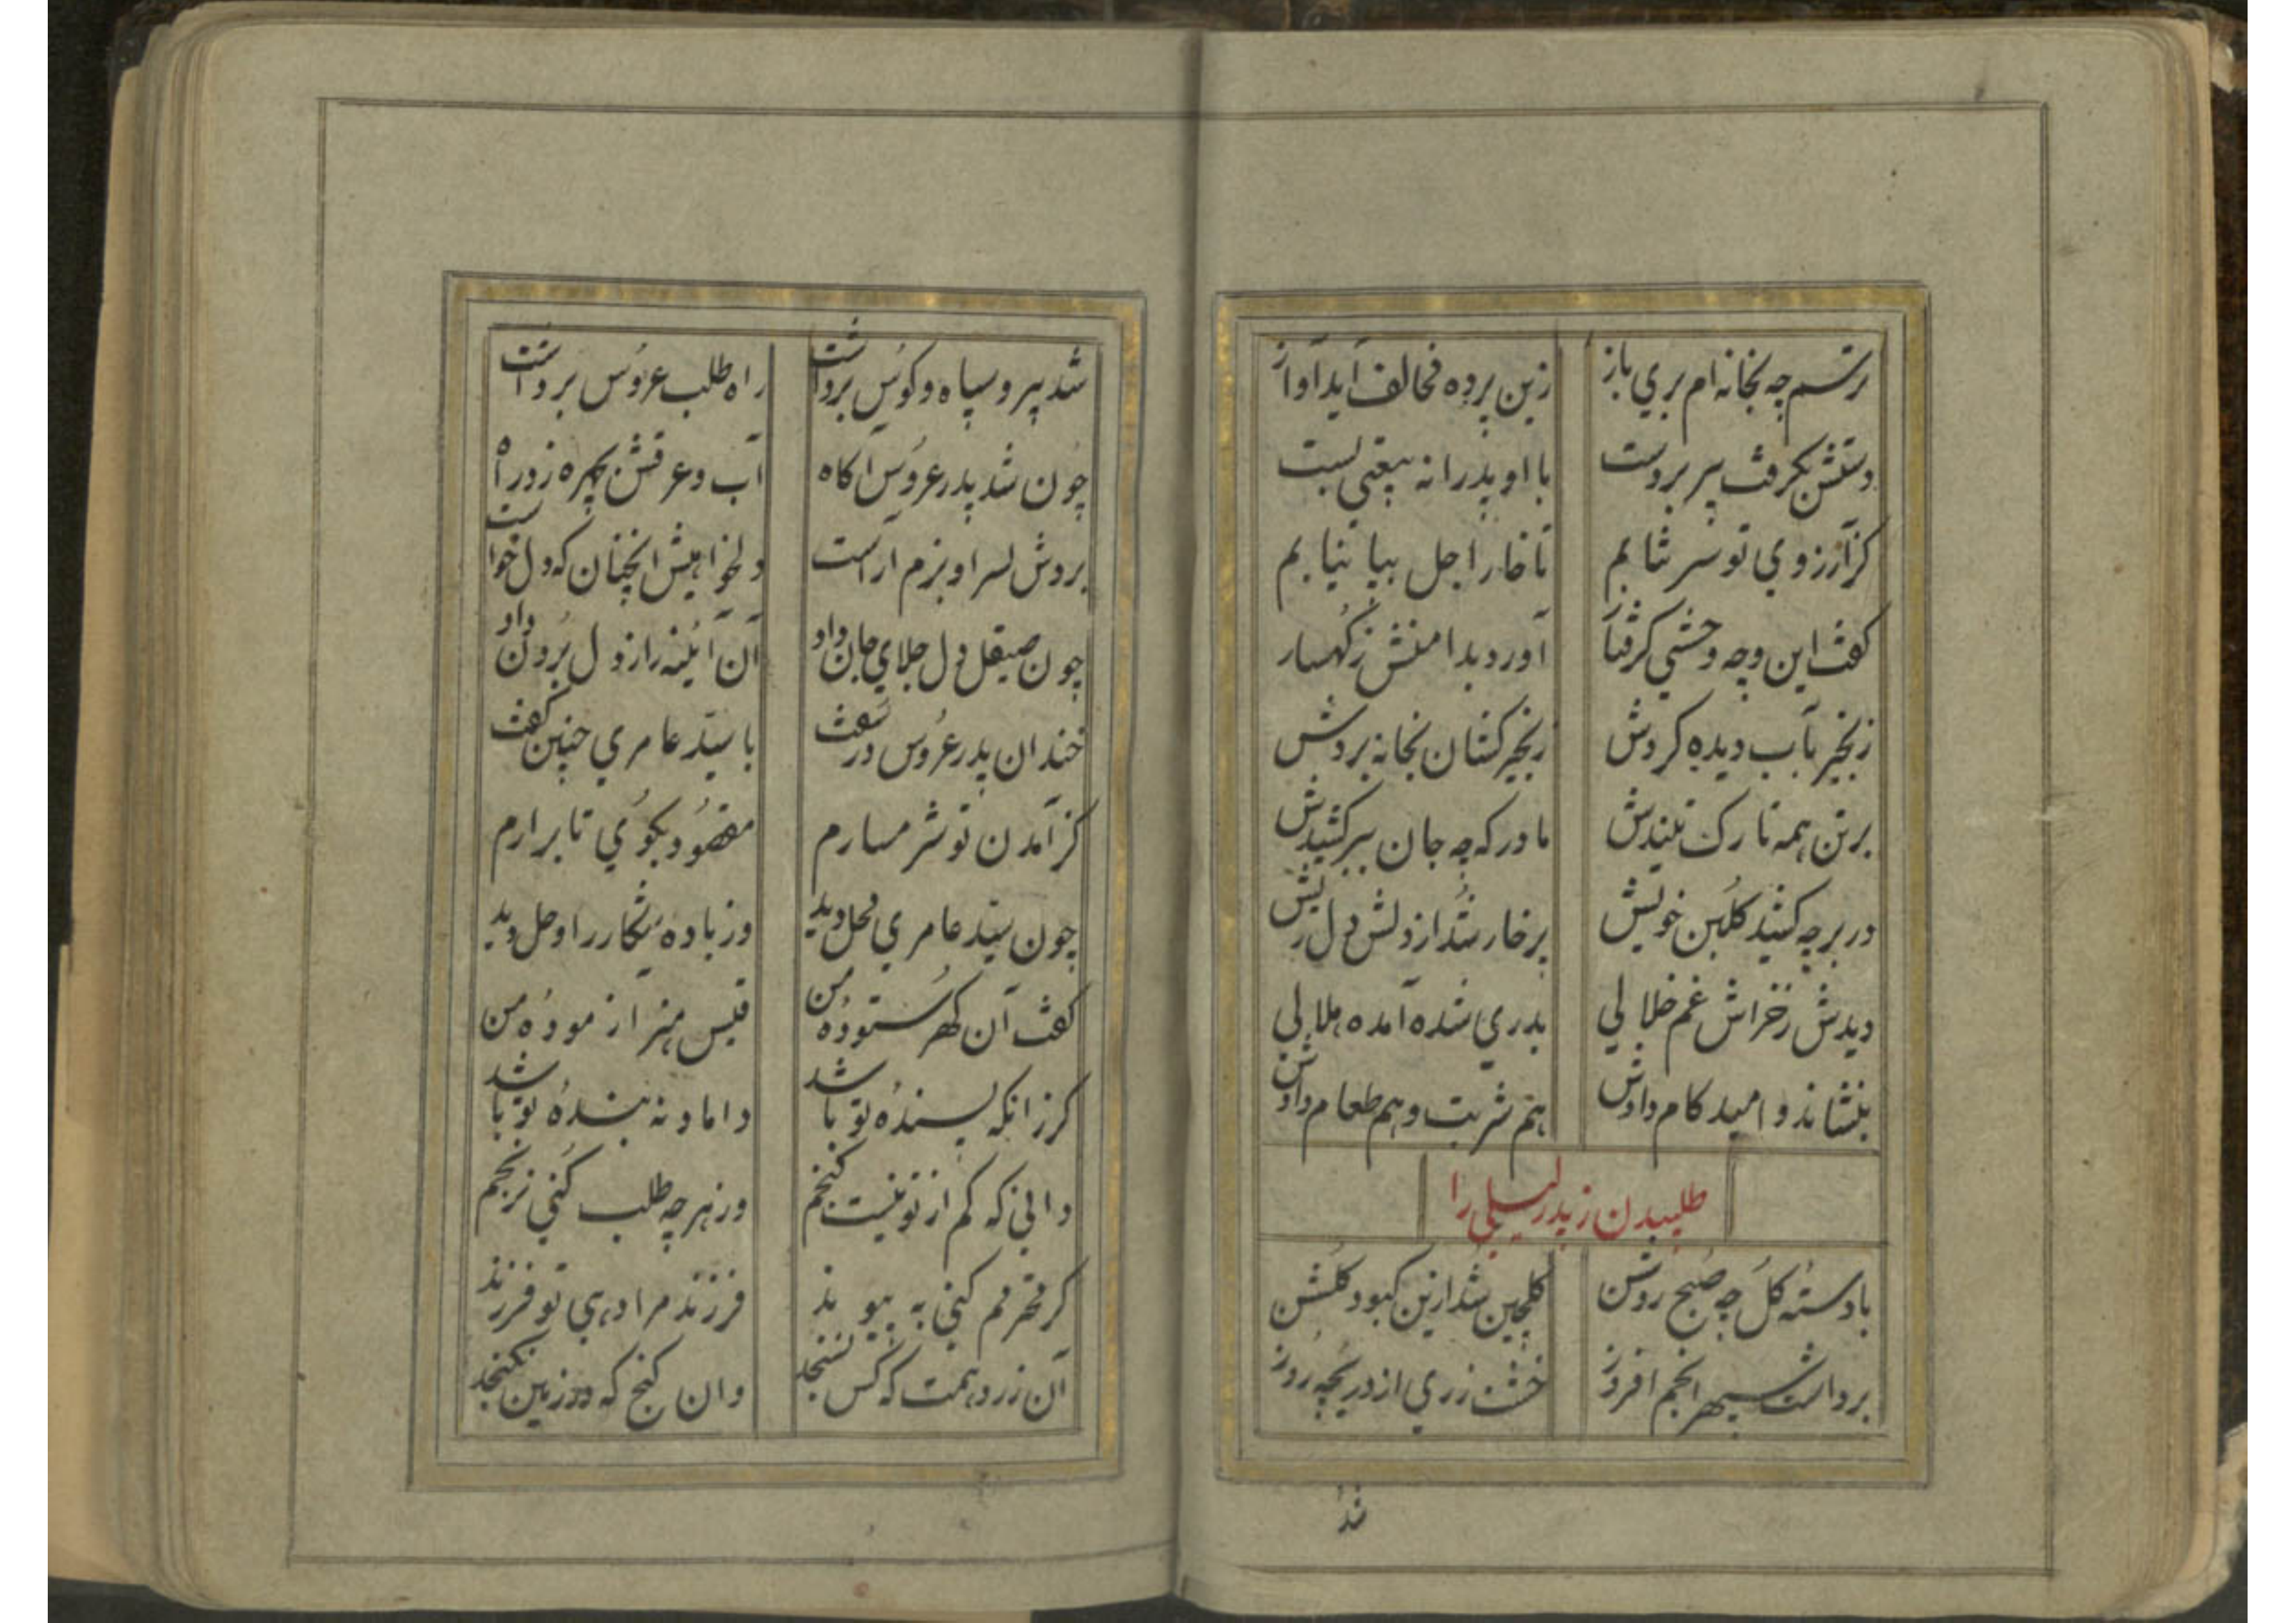 ترسم چه بخانه ام بری باز زین پرده مخالف آید آواز
دستش بگرفت پیر بر دست با او پدرانه بیعتی بست
کز آرزوی تو سر نتابم تا خار اجل بپا نیابم
گفت این وچه وحشی گرفتار آورد بدامنش ز کهسار
زنجیر بآب دیده کردش زنجیر کشان بخانه بردش
بر تن همه تا رک تنیدش مادر که چه جان ببر کشیدش
در بر چه کشید گلبن خویش پر خار شد از دلش دل ریش
دیدش ز خراش غم خلالی بدری شده آمده هلالی
بنشاند و امید کام دادش هم شربت و هم طعام دادش
طلبیدن ز پدر لیلی را
با دسته گل چه صبح روشن گلچین شد ازین کبود گلشن
برداشت سپهر انجم افروز خشت زری از دریچه روز
شد
شد پیر و سپاه و کوس برداشت راه طلب عروس برداشت
چون شد پدر عروس آگاه آب و عرقش بچهره زد راه
بردش بسر او بزم آراست دلخواهیش آنچنان که دل خواست
چون صیقل دل جلای جان داد آن آینه راز دل برون داد
خندان پدر عروس در سفت با سید عامری چنین گفت
کز آمدن تو شرمسارم مقصود بگوی تا برآرم
چون سید عامری محل دید وز باده شکار در اوحل دید
گفت آن گهر ستوده من قیس هنر آزموده من
گر زانکه پسنده تو باشد داماد نه بنده تو باشد
دانی که کم از تو نیست گنجم ور هر چه طلب کنی نرنجم
گر محترمم کنی به پیوند فرزند مرا دهی تو فرزند
آن زر دهمت که کس نسنجد وان گنج که در زمین نگنجد